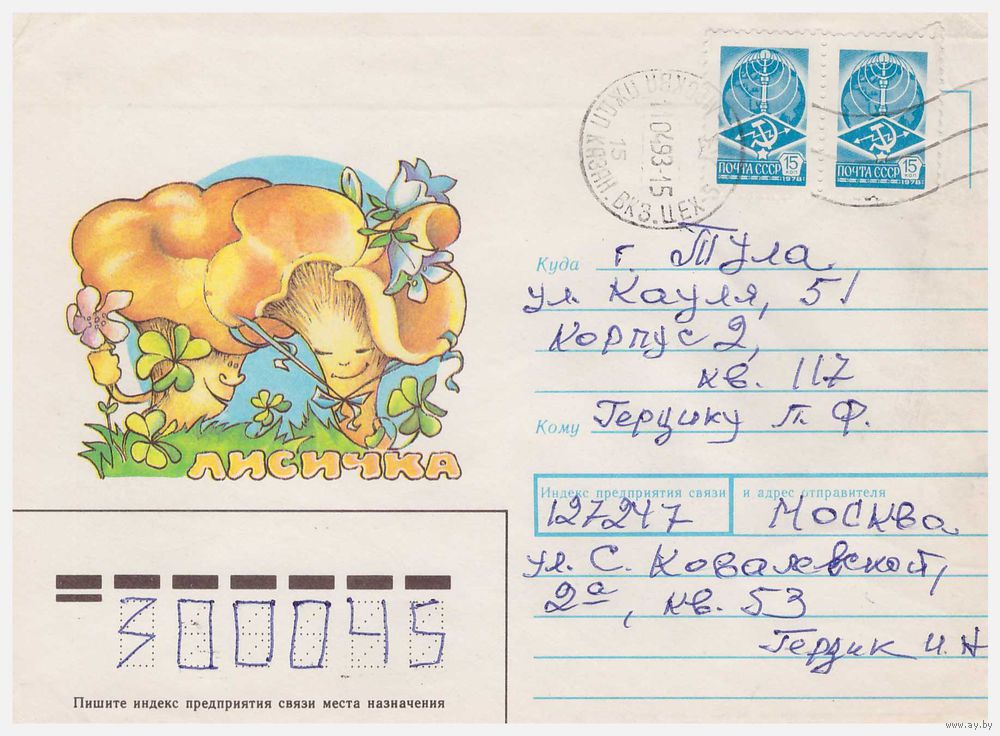 МОСКВА ПЖДП КАЗАН. ВКЗ. ЦЕХ
11 04 93-15
15
15 КОП
ПОЧТА СССР
1978
15 КОП
ПОЧТА СССР
1978
Куда г. Тула
ул. Кауля, 51
Корпус 2,
кв. 117
Кому Герцику П. Ф.
ЛИСИЧКА
Индекс предприятия связи и адрес отправителя
127247 Москва
ул. С. Ковалевской,
2а, кв. 53
Герцик И. Н
300045
Пишите индекс предприятия связи места назначения
www.ay.by